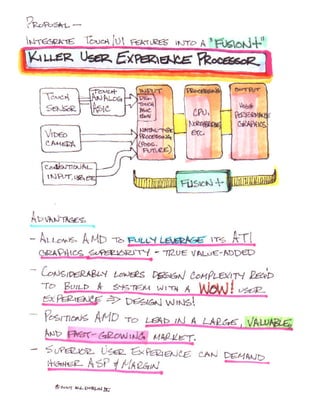 PROPOSAL —
INTEGRATE TOUCH/UI FEATURES INTO A "FUSION+"
KILLER USER EXPERIENCE PROCESSOR
TOUCH SENSOR
TOUCH ANALOG ASIC
INPUT
PROCESSING
OUTPUT
CPU,
ETC.
HIGH PERFORMANCE GRAPHICS
VIDEO CAMERA
PROCESSING
FUTURE)
CONVENTIONAL
INPUT,
FUSION+
ADVANTAGES
- ALLOWS AMD TO FULLY LEVERAGE ITS ATI
GRAPHICS SUPERIORITY - TRUE VALUE-ADDED
- CONSIDERABLY LOWERS DESIGN COMPLEXITY REQ'D
TO BUILD A SYSTEM WITH A WOW! USER
EXPERIENCE ⇒ DESIGN WINS!
- POSITIONS AMD TO LEAD IN A LARGE, VALUABLE
AND FAST-GROWING MARKET.
- SUPERIOR USER EXPERIENCE CAN DEMAND
HIGHER ASP & MARGIN